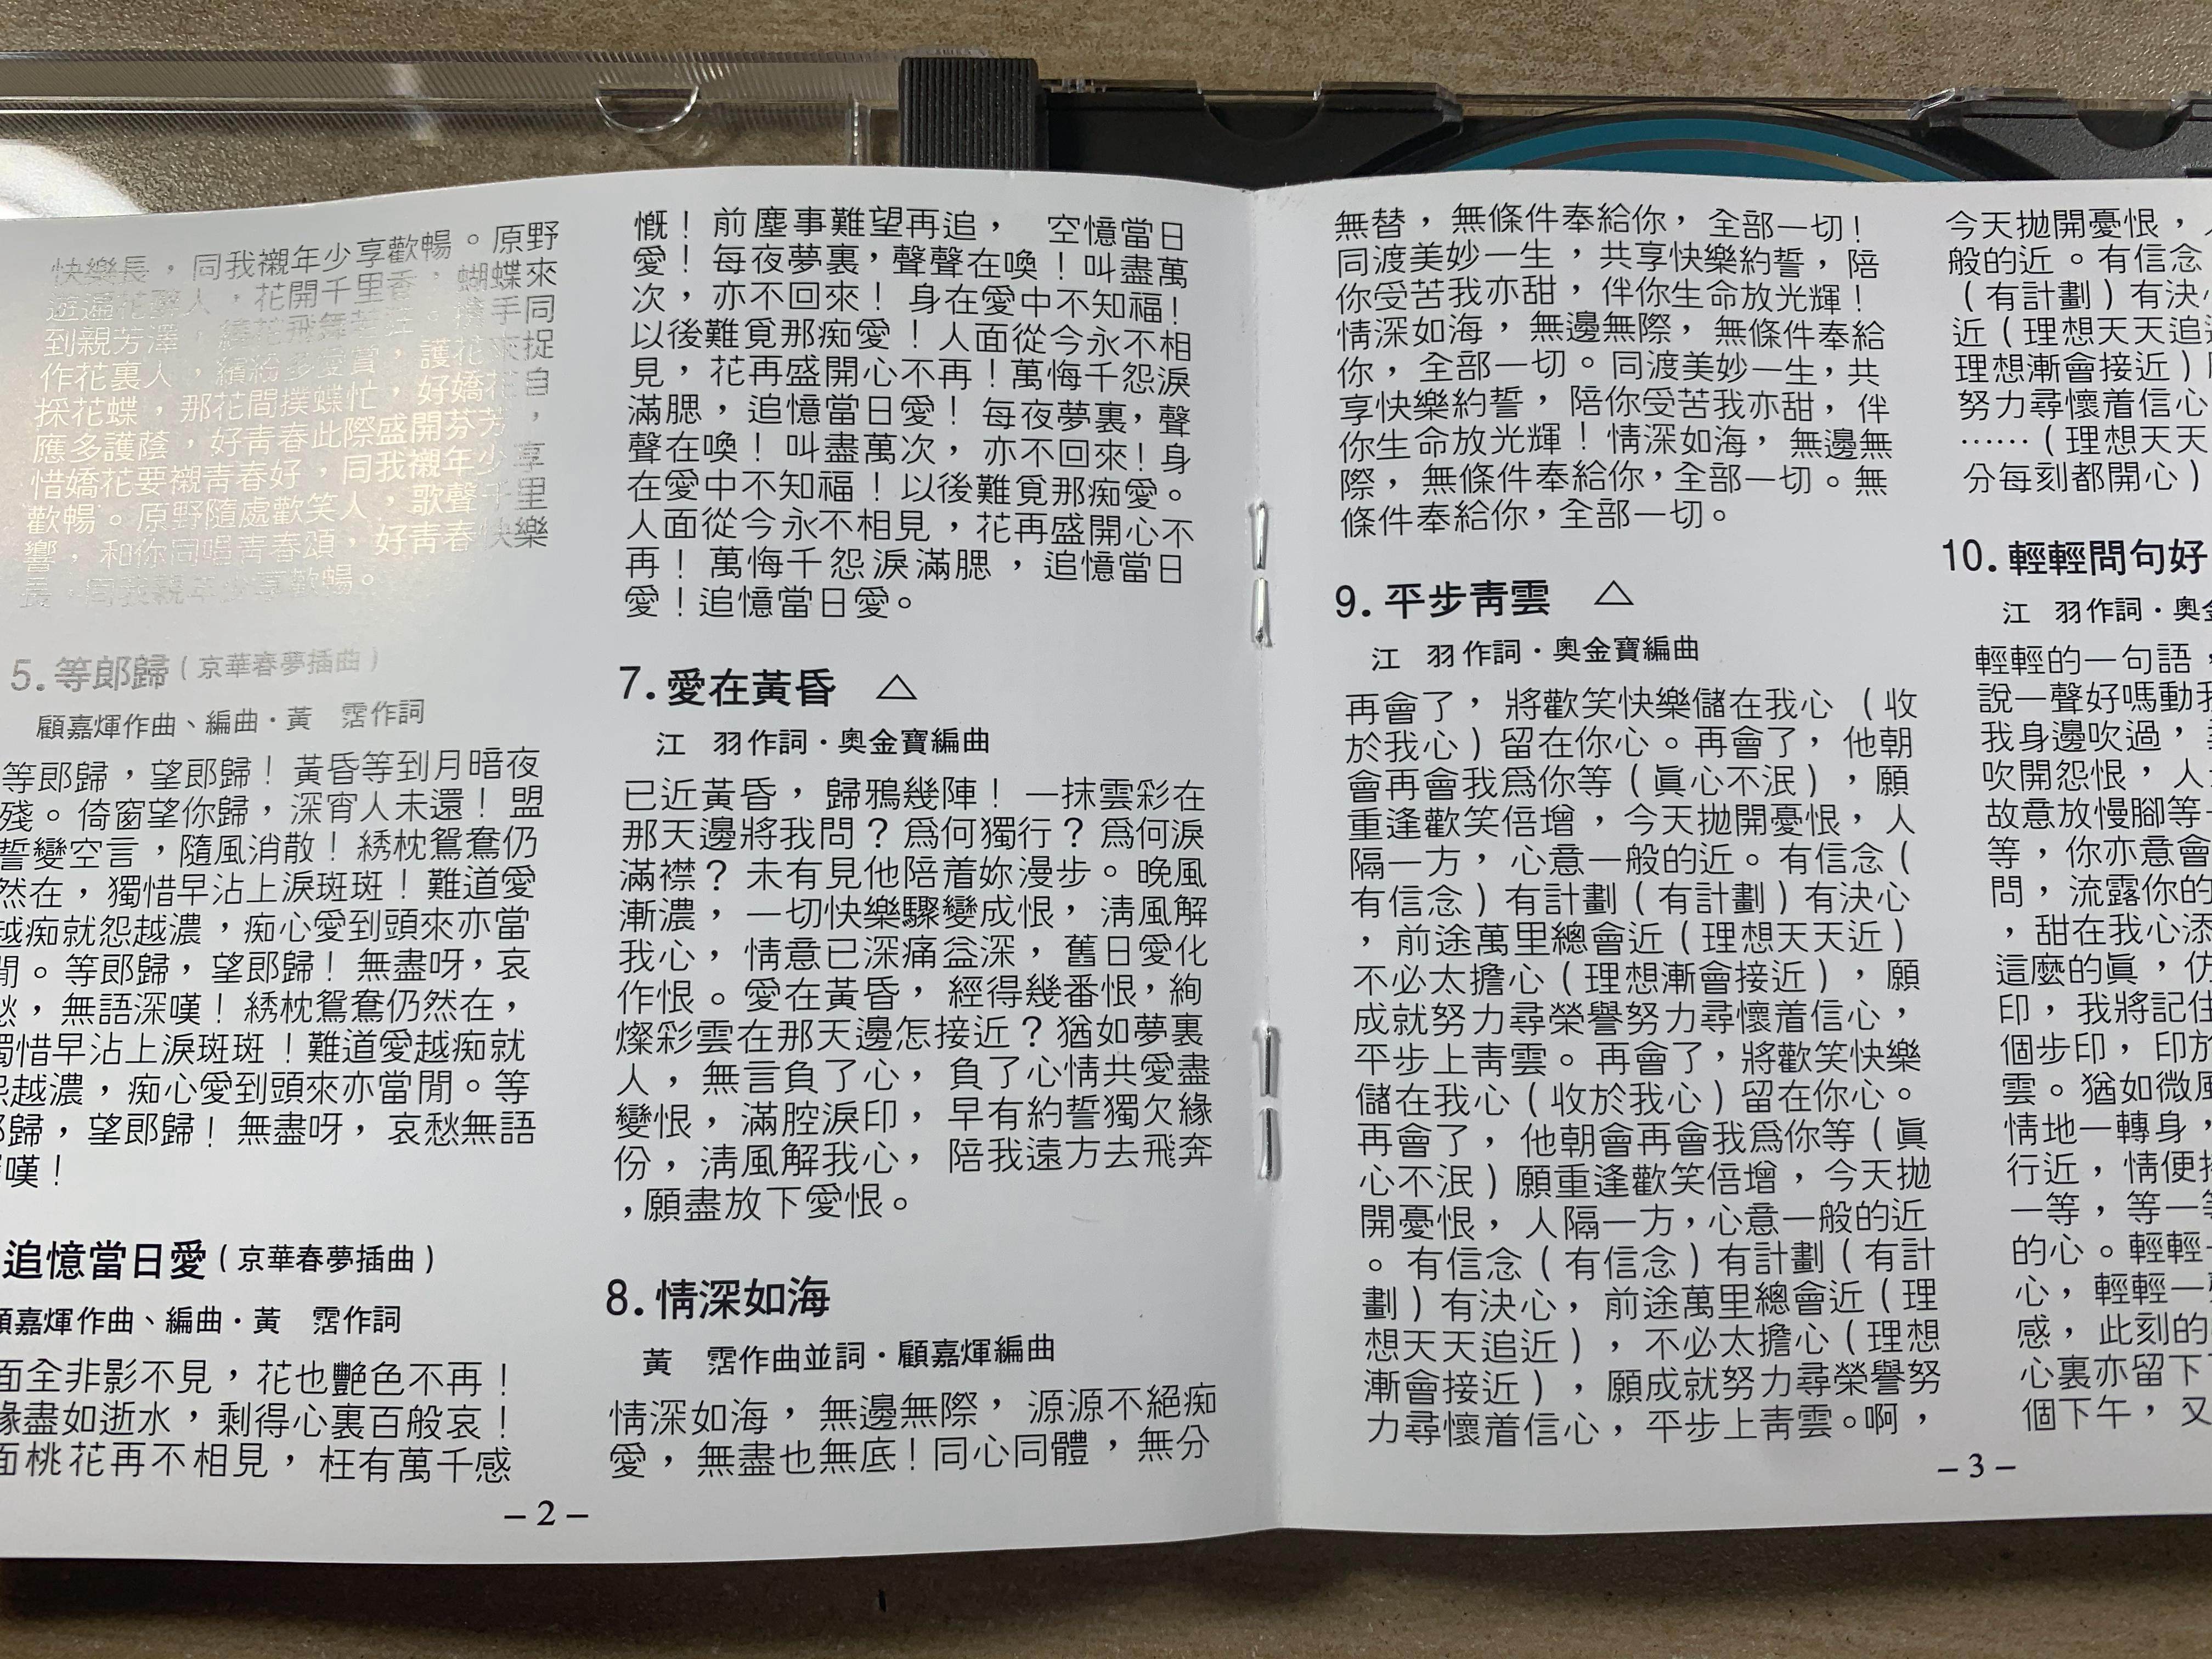 快樂長，同我襯年少享歡暢。原野
遊逼花醉人，花開千里香，蝴蝶來
到親芳澤，繞花飛舞若狂。攜手同
作花裏人，繽紛多愛賞，護花來捉
採花蝶，那花間撲蝶忙，好嬌花自
應多護蔭，好靑春此際盛開芬芳，
惜嬌花要襯靑春好，同我襯年少享
歡暢。原野隨處歡笑人，歌聲千里
響，和你同唱靑春頌，好靑春快樂
長，同我襯年少享歡暢。
5. 等郎歸（京華春夢插曲）
顧嘉煇作曲、編曲・黃　霑作詞
等郎歸，望郎歸！黃昏等到月暗夜
殘。倚窗望你歸，深宵人未還！盟
誓變空言，隨風消散！綉枕鴛鴦仍
然在，獨惜早沾上淚斑斑！難道愛
越痴就怨越濃，痴心愛到頭來亦當
閒。等郎歸，望郎歸！無盡呀，哀
愁，無語深嘆！綉枕鴛鴦仍然在，
獨惜早沾上淚斑斑！難道愛越痴就
怨越濃，痴心愛到頭來亦當閒。等
郎歸，望郎歸！無盡呀，哀愁無語
嘆！
追憶當日愛（京華春夢插曲）
顧嘉煇作曲、編曲・黃　霑作詞
面全非影不見，花也艷色不再！
緣盡如逝水，剩得心裏百般哀！
面桃花再不相見，枉有萬千感
慨！前塵事難望再追，　空憶當日
愛！每夜夢裏，聲聲在喚！叫盡萬
次，亦不回來！身在愛中不知福！
以後難覓那痴愛！人面從今永不相
見，花再盛開心不再！萬悔千怨淚
滿腮，追憶當日愛！每夜夢裏，聲
聲在喚！叫盡萬次，亦不回來！身
在愛中不知福！以後難覓那痴愛。
人面從今永不相見，花再盛開心不
再！萬悔千怨淚滿腮，追憶當日
愛！追憶當日愛。
7. 愛在黃昏　△
江　羽作詞・奧金寶編曲
已近黃昏，歸鴉幾陣！一抹雲彩在
那天邊將我問？爲何獨行？爲何淚
滿襟？未有見他陪着妳漫步。晚風
漸濃，一切快樂驟變成恨，淸風解
我心，情意已深痛益深，舊日愛化
作恨。愛在黃昏，經得幾番恨，絢
燦彩雲在那天邊怎接近？猶如夢裏
人，無言負了心，負了心情共愛盡
變恨，滿腔淚印，早有約誓獨欠緣
份，淸風解我心，陪我遠方去飛奔
，願盡放下愛恨。
8. 情深如海
黃　霑作曲並詞・顧嘉煇編曲
情深如海，無邊無際，源源不絕痴
愛，無盡也無底！同心同體，無分
－2－
無替，無條件奉給你，全部一切！
同渡美妙一生，共享快樂約誓，陪
你受苦我亦甜，伴你生命放光輝！
情深如海，無邊無際，無條件奉給
你，全部一切。同渡美妙一生，共
享快樂約誓，陪你受苦我亦甜，伴
你生命放光輝！情深如海，無邊無
際，無條件奉給你，全部一切。無
條件奉給你，全部一切。
9. 平步靑雲　△
江　羽作詞・奧金寶編曲
再會了，將歡笑快樂儲在我心（收
於我心）留在你心。再會了，他朝
會再會我爲你等（眞心不泯），願
重逢歡笑倍增，今天拋開憂恨，人
隔一方，心意一般的近。有信念（
有信念）有計劃（有計劃）有決心
，前途萬里總會近（理想天天近）
不必太擔心（理想漸會接近），願
成就努力尋榮譽努力尋懷着信心，
平步上靑雲。再會了，將歡笑快樂
儲在我心（收於我心）留在你心。
再會了，他朝會再會我爲你等（眞
心不泯）願重逢歡笑倍增，今天拋
開憂恨，人隔一方，心意一般的近
。有信念（有信念）有計劃（有計
劃）有決心，前途萬里總會近（理
想天天追近），不必太擔心（理想
漸會接近），願成就努力尋榮譽努
力尋懷着信心，平步上靑雲。啊，
今天拋開憂恨，
般的近。有信念
（有計劃）有決
近（理想天天追
理想漸會接近）
努力尋懷着信心
……（理想天天
分每刻都開心）
10. 輕輕問句好
江　羽作詞・奧
輕輕的一句語，
說一聲好嗎動
我身邊吹過，
吹開怨恨，人
故意放慢腳等
等，你亦意會
問，流露你的
，甜在我心添
這麼的眞，仿
印，我將記住
個步印，印於
雲。猶如微風
情地一轉身，
行近，情便
一等，等一等
的心。輕輕
心，輕輕一
感，此刻的
心裏亦留下
個下午，又
－3－